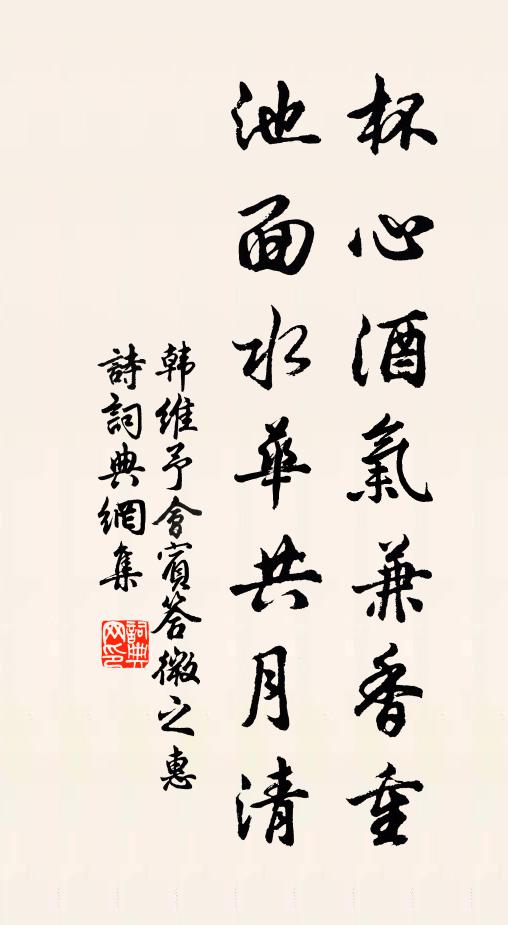 杯心酒氣兼香重
池面水華共月清
韩維予會賓答微之惠
詩詞典網集
詞典网印